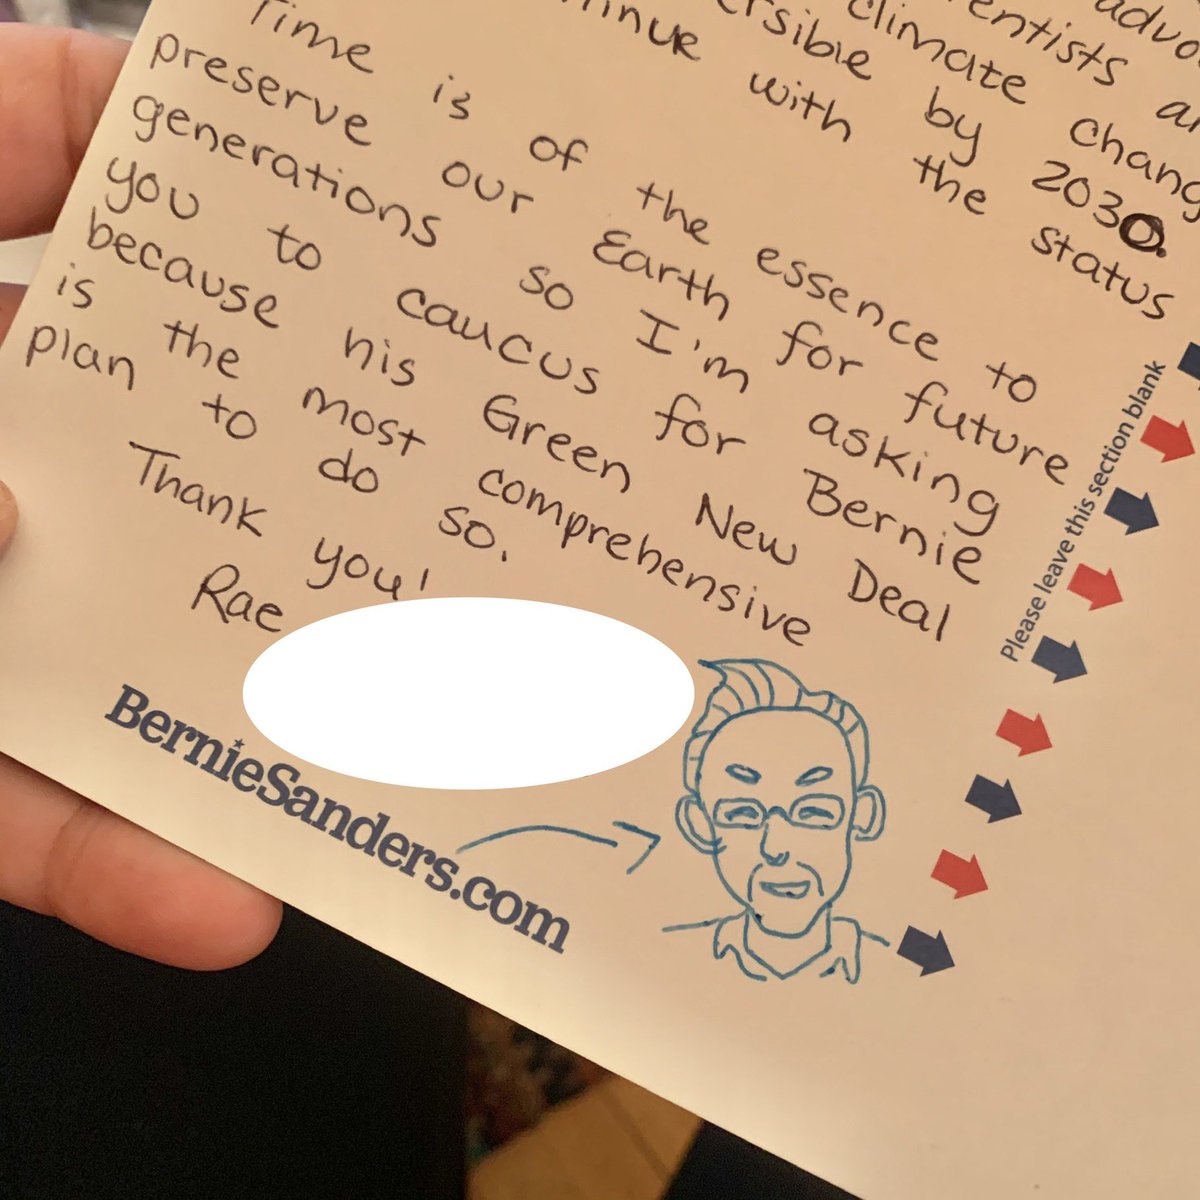 climate
by 2030.
with the status
Time is of the essence to
preserve our Earth for future
generations so I'm asking
you to caucus for Bernie
because his Green New Deal
is the most comprehensive
plan to do so.
Thank you!
Rae
BernieSanders.com
Please leave this section blank